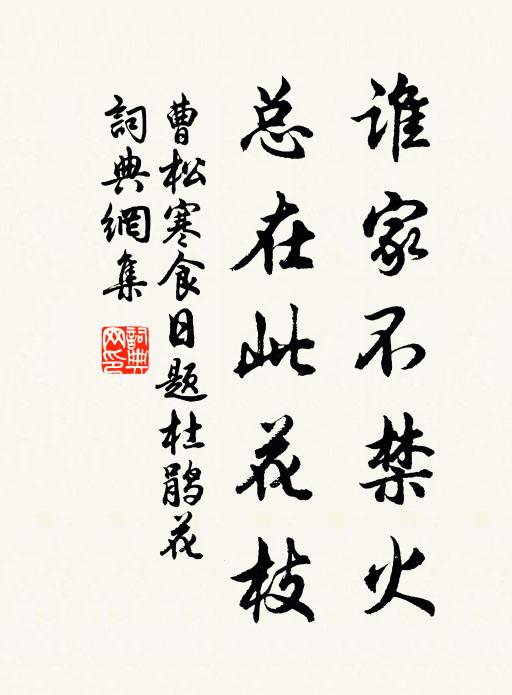 谁家不禁火
总在此花枝
曹松寒食日题杜鹃花
詞典網集
詞典网印